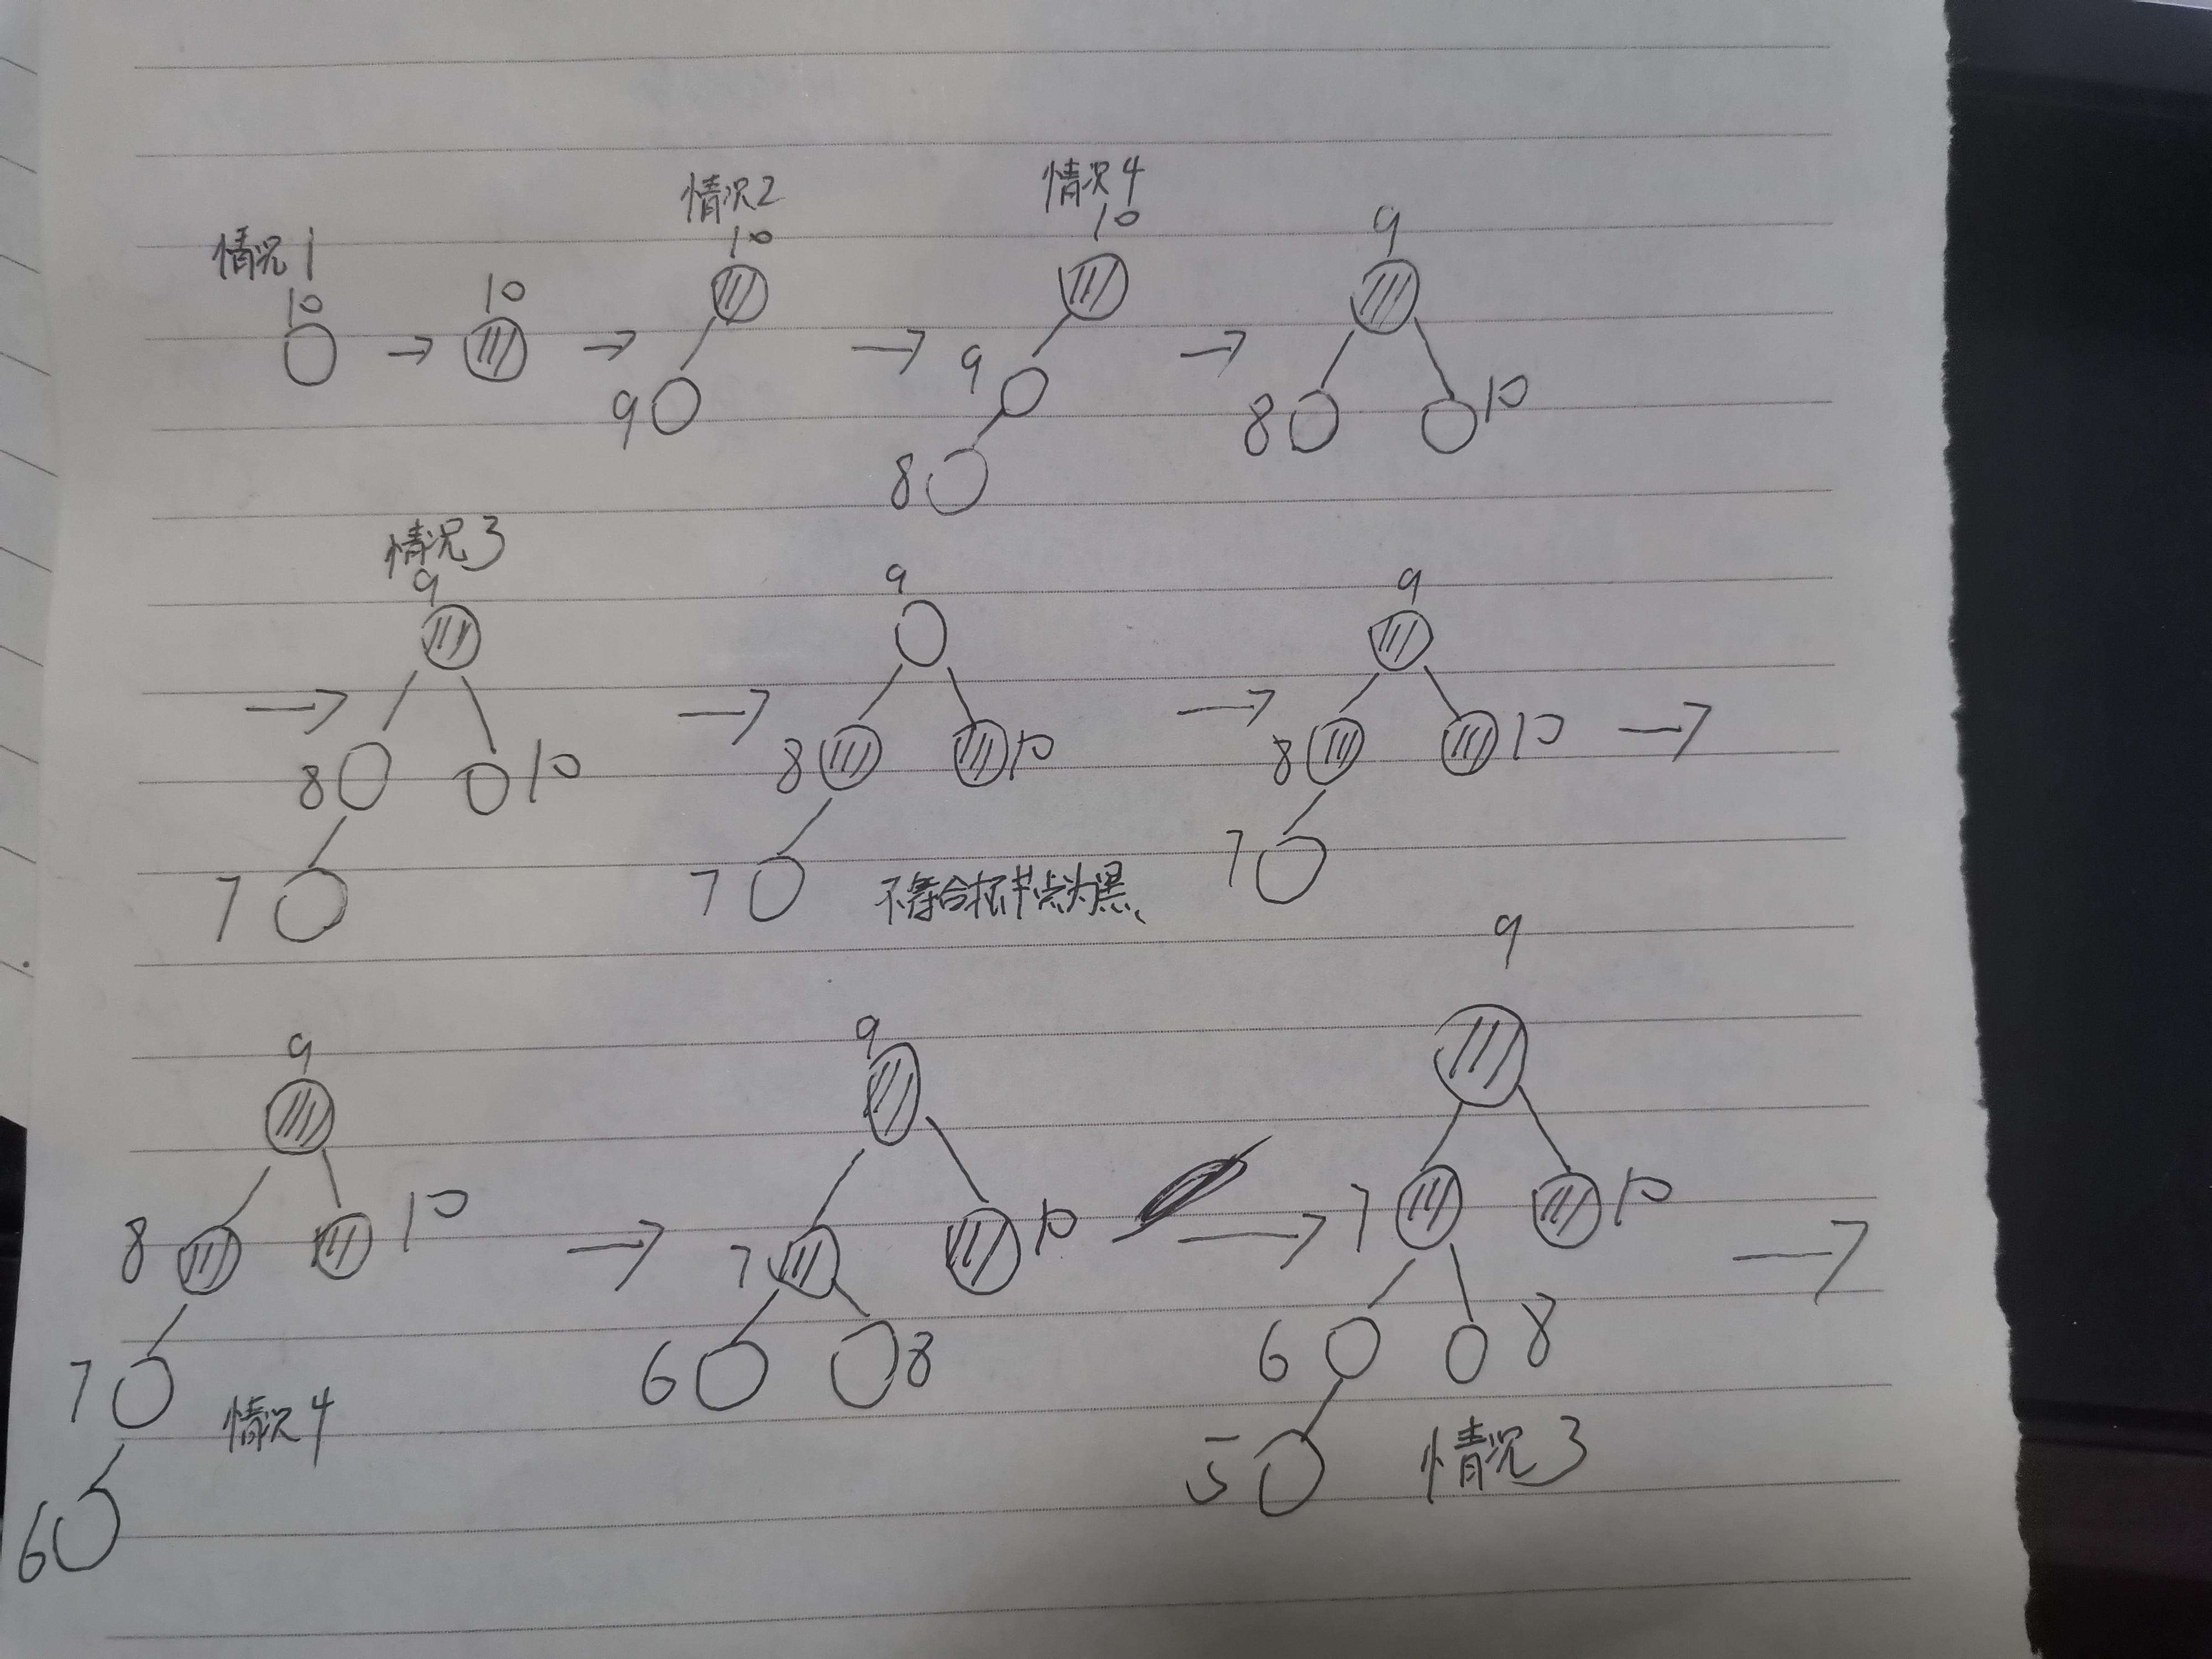 情况1
10
10
情况2
10
9
情况4
10
9
8
9
8 10
情况3
9
8 10
7
9
8 10
7
不符合根节点为黑、
9
8 10
7
9
8 10
7
6
情况4
9
7 10
6 8
9
7 10
6 8
5
情况3